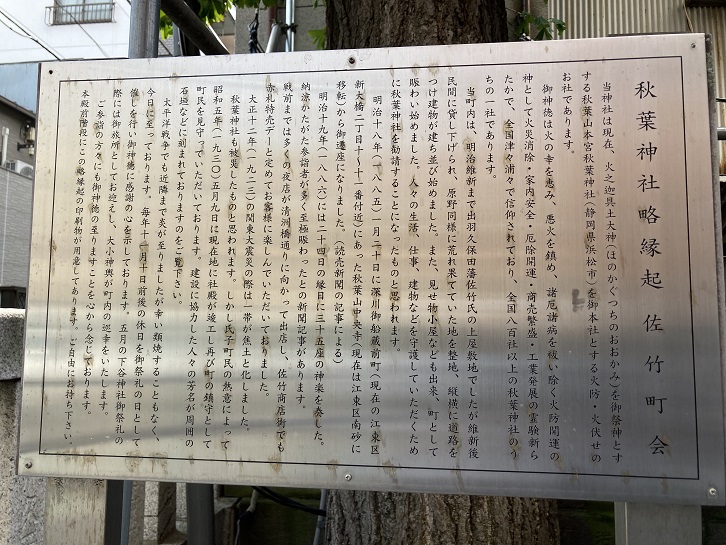 秋葉神社略縁起 佐竹町会
当神社は現在、火之迦具土大神（ほのかぐつちのおおかみ）を御祭神とす
る秋葉山本宮秋葉神社（静岡県浜松市）を御本社とする火防・火伏せの
お社であります。
御神徳は火の幸を恵み、悪火を鎮め、諸厄諸病を祓い除く火防開運の
神として火災消除・家内安全・厄除開運・商売繁盛・工業発展の霊験新ら
たかで、全国津々浦々で信仰されており、全国八百社以上の秋葉神社のう
ちの一社であります。
当町内は、明治維新まで出羽久保田藩佐竹氏の上屋敷地でしたが維新後
民間に貸し下げられ、原野同様に荒れ果てていた地を整地、縦横に道路を
つけ建物が建ち並び始めました。また、見せ物小屋なども出来、町として
賑わい始めました。人々の生活、仕事、建物などを守護していただくため
に秋葉神社を勧請することになったものと思われます。
明治十八年（一八八五）一月二十日に深川御船蔵前町（現在の江東区
新大橋二丁目十〜十一番付近）にあった秋葉山中央寺（現在は江東区南砂に
移転）から御遷座になりました。（読売新聞の記事による）
明治十九年（一八八六）には二十四日の縁日に三十五座の神楽を奏した。
納涼かたがた参詣者が多く至極賑わったとの新聞記事があります。
戦前までは多くの夜店が清洲橋通りに向かって出店し、佐竹商店街でも
赤札特売デーと定めてお客様に楽しんでいただいておりました。
大正十二年（一九二三）の関東大震災の際は一帯が焦土と化しました。
秋葉神社も被災したものと思われます。しかし氏子町民の熱意によって
昭和五年（一九三〇）五月九日に現在地に社殿が竣工し再び町の鎮守として
町民を見守っていただいております。建設に協力した人々の芳名が周囲の
石垣などに刻まれておりますのをご覧下さい。
太平洋戦争でも近隣まで炎が至りましたが幸い類焼することもなく、
今日に至っております。毎年十一月十日前後の休日を御祭礼の日として
催しを行い御神徳に感謝の心を示しております。五月の下谷神社御祭礼の
際には御旅所としてお迎えし、大小神輿が町内の巡幸をいたします。
ご参詣の方々にも御神徳の至りますことを心から念じております。
本殿前階段にこの略縁起の印刷物が用意してあります。ご自由にお持ち下さい。